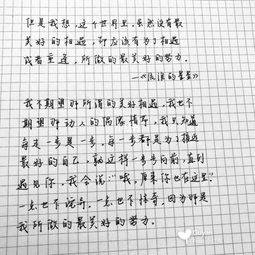 但是我想，这个世界上，虽然没有最
美好的相遇，却应该有为了相遇
或者重逢，所做的最美好的努力。
——《流浪的星星》
我不期望那所谓的美好相遇，我也不
期望那动人的偶像情节，我只知道
每走一步是一步，每一步都是为了相遇
最好的自己，就这样一步步向前，直到
遇见你，我会说：哦，原来你也在这里？
一点也不诧奇，一点也不惊奇，因为那是
我所做的最美好的努力。